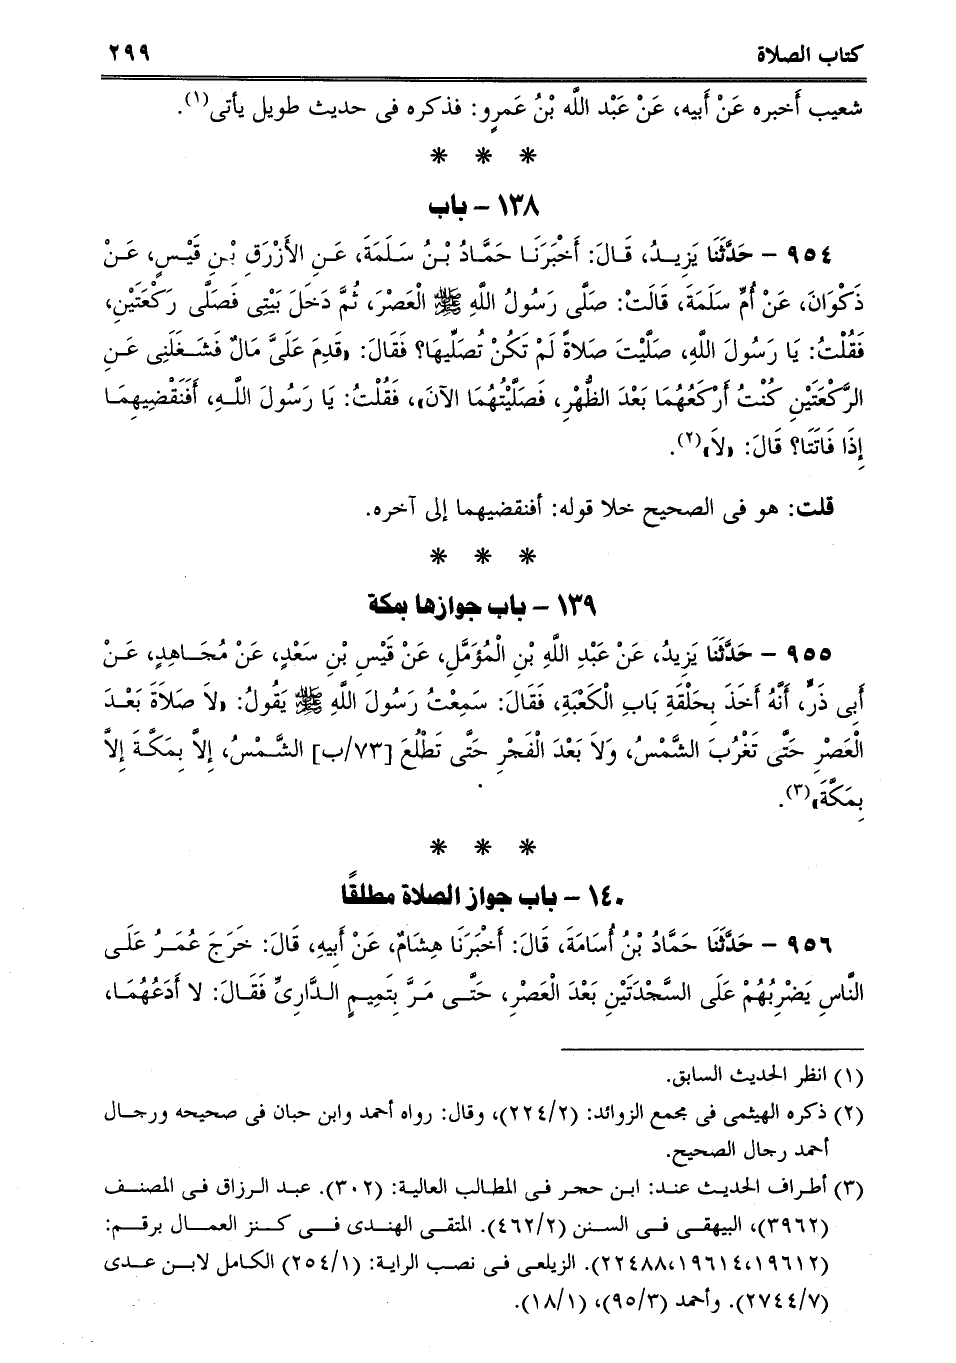 كتاب الصلاة ٢٩٩
شعيب أخبره عَنْ أَبيه، عَنْ عَبْد الله بْنُ عَمرٍو: فذكره فى حديث طويل يأتى(١).
* * *
١٣٨ – باب
٩٥٤ – حَدَّثَنَا يَزِيدُ، قَالَ: أَخْبَرَنَا حَمَّادُ بْنُ سَلَمَةَ، عَنِ الأَزْرَقِ بْنِ قَيْسٍ، عَنْ
ذَكْوَانَ، عَنْ أُمِّ سَلَمَةَ، قَالَتْ: صَلَّى رَسُولُ اللَّهِ ﷺ الْعَصْرَ، ثُمَّ دَخَلَ بَيْتِى فَصَلَّى رَكْعَتَيْنِ،
فَقُلْتُ: يَا رَسُولَ اللَّهِ، صَلَّيْتَ صَلاَةً لَمْ تَكُنْ تُصَلِّيهَا؟ فَقَالَ: «قَدِمَ عَلَىَّ مَالٌ فَشَغَلَنِى عَنِ
الرَّكْعَتَيْنِ كُنْتُ أَرْكَعُهُمَا بَعْدَ الظُّهْرِ، فَصَلَّيْتُهُمَا الآنَ»، فَقُلْتُ: يَا رَسُولَ اللَّهِ، أَفَنَقْضِيهِمَا
إِذَا فَاتَتَا؟ قَالَ: «لاَ»(٢).
قلت: هو فى الصحيح خلا قوله: أفنقضيهما إلى آخره.
* * *
١٣٩ – باب جوازها بمكة
٩٥٥ – حَدَّثَنَا يَزِيدُ، عَنْ عَبْدِ اللَّهِ بْنِ الْمُؤَمَّلِ، عَنْ قَيْسِ بْنِ سَعْدٍ، عَنْ مُجَاهِدٍ، عَنْ
أَبِى ذَرٍّ، أَنَّهُ أَخَذَ بِحَلْقَةِ بَابِ الْكَعْبَةِ، فَقَالَ: سَمِعْتُ رَسُولَ اللَّهِ ﷺ يَقُولُ: «لاَ صَلاَةَ بَعْدَ
الْعَصْرِ حَتَّى تَغْرُبَ الشَّمْسُ، وَلاَ بَعْدَ الْفَجْرِ حَتَّى تَطْلُعَ [٧٣/ب] الشَّمْسُ، إِلاَّ بِمَكَّةَ إِلاَّ
بِمَكَّةَ»(٣).
* * *
١٤٠ – باب جواز الصلاة مطلقًا
٩٥٦ – حَدَّثَنَا حَمَّادُ بْنُ أُسَامَةَ، قَالَ: أَخْبَرَنَا هِشَامٌ، عَنْ أَبِيهِ، قَالَ: خَرَجَ عُمَرُ عَلَى
النَّاسِ يَضْرِبُهُمْ عَلَى السَّجْدَتَيْنِ بَعْدَ الْعَصْرِ، حَتَّى مَرَّ بِتَمِيمٍ الدَّارِىِّ فَقَالَ: لا أَدَعُهُمَا،
(١) انظر الحديث السابق.
(٢) ذكره الهيثمى فى مجمع الزوائد: (٢٢٤/٢)، وقال: رواه أحمد وابن حبان فى صحيحه ورجال
أحمد رجال الصحيح.
(٣) أطراف الحديث عند: ابن حجر فى المطالب العالية: (٣٠٢). عبد الرزاق فى المصنف
(٣٩٦٢)، البيهقى فى السنن (٤٦٢/٢). المتقى الهندى فى كنز العمال برقم:
(١٩٦١٢، ١٩٦١٤، ٢٢٤٨٨). الزيلعى فى نصب الراية: (٢٥٤/١) الكامل لابن عدى
(٢٧٤٤/٧). وأحمد (٩٥/٣)، (١٨/١).